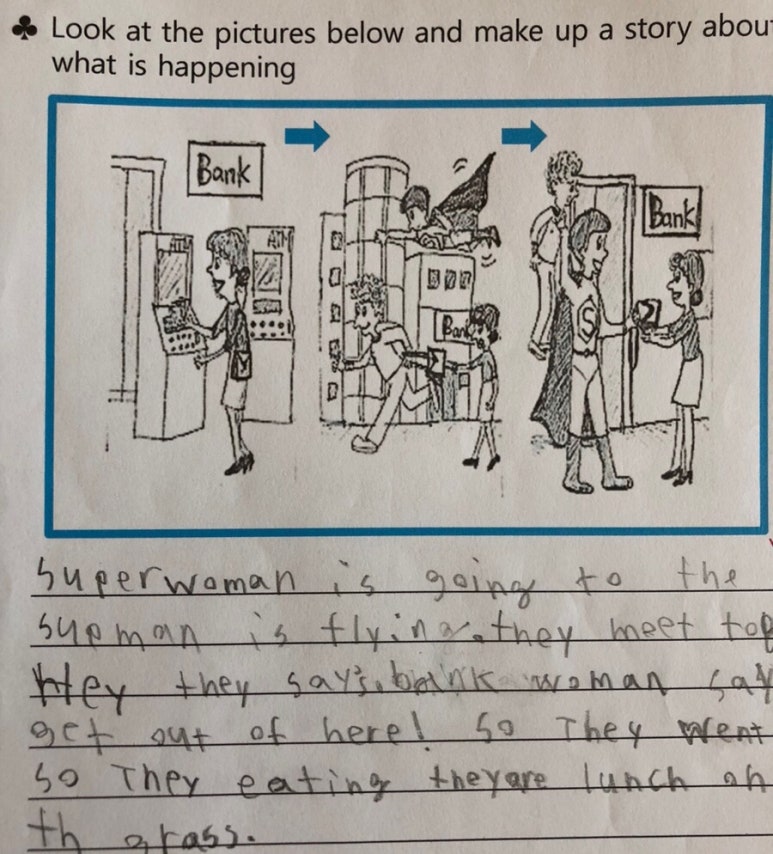 ♣ Look at the pictures below and make up a story about
what is happening
Bank
ATM
ATM
Bank
S
Bank
superwoman is going to the
supman is flying. they meet tog
Hey they say's. bank woman say
get out of here! So They went
so They eating theyare lunch on
th grass.